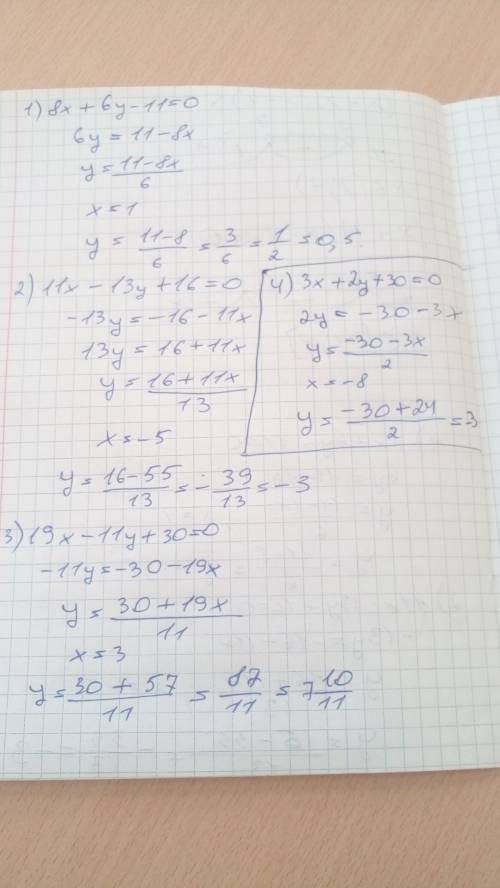 1) 8x + 6y - 11 = 0
6y = 11 - 8x
y = (11 - 8x)/6
x = 1
y = (11 - 8)/6 = 3/6 = 1/2 = 0,5.
2) 11x - 13y + 16 = 0
-13y = -16 - 11x
13y = 16 + 11x
y = (16 + 11x)/13
x = -5
y = (16 - 55)/13 = -39/13 = -3
4) 3x + 2y + 30 = 0
2y = -30 - 3x
y = (-30 - 3x)/2
x = -8
y = (-30 + 24)/2 = -3
3) 19x - 11y + 30 = 0
-11y = -30 - 19x
y = (30 + 19x)/11
x = 3
y = (30 + 57)/11 = 87/11 = 7 10/11